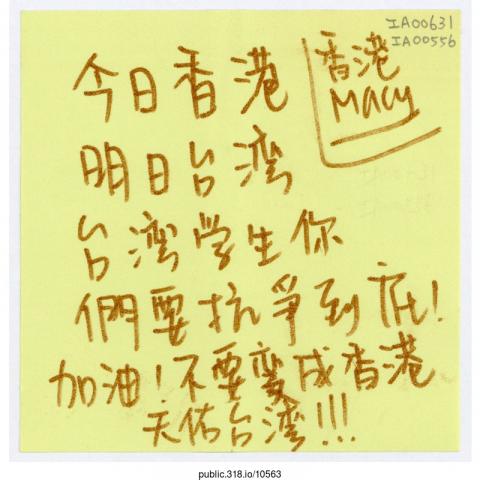 IA00631
IA00556
香港
Macy
今日香港
明日台湾
台湾学生你
們要抗爭到底!
加油!不要變成香港
天佑台湾!!!
public.318.io/10563